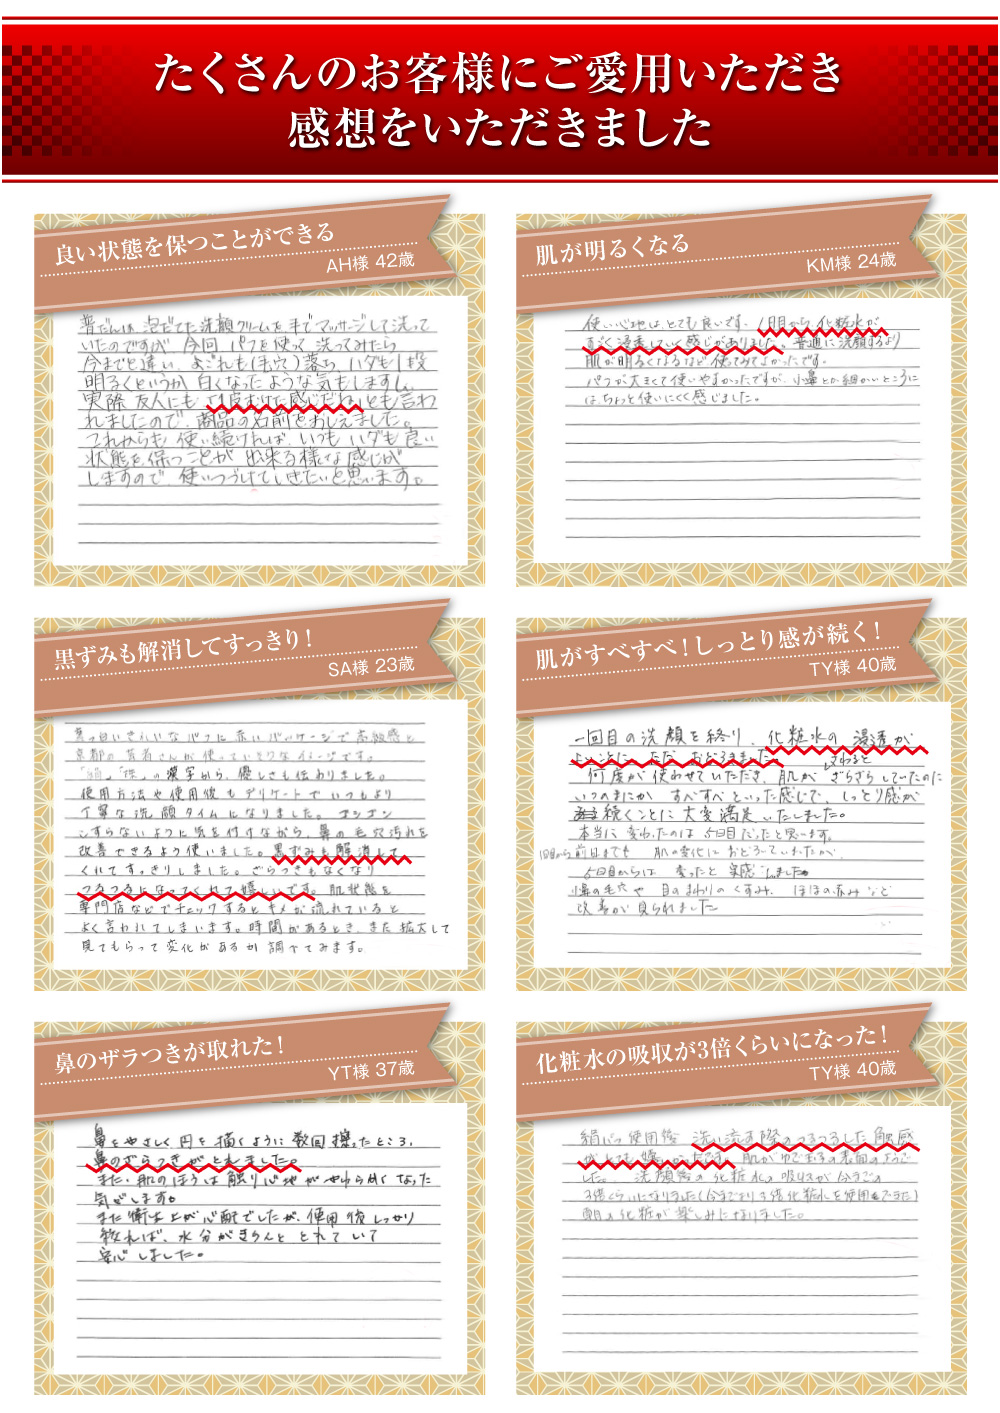 たくさんのお客様にご愛用いただき
感想をいただきました
良い状態を保つことができる
AH様 42歳
普だんは 泡だてた洗顔クリームを手でマッサージして洗って
いたのですが、今回 パフを使って 洗ってみたら
今までと違い、よごれも(毛穴)落ち、ハダも1段
明るくというか 白くなったような気もしますし、
実際 友人にも「1皮むけた感じだね」とも言わ
れましたので、商品の名前をおしえました。
これからも 使い続ければ、いつも ハダも良い
状態を保つことが 出来る様な感じが
しますので、使いつづけていきたいと思います。
肌が明るくなる
KM様 24歳
使い心地はとても良いです。1日目から化粧水が
すごく浸透していく感じがありました。普通に洗顔するより
肌が明るくなるなど使ってみてよかったです。
パフが大きくて使いやすかったですが、小鼻とか細かいところに
はちょっと使いにくく感じました。
黒ずみも解消してすっきり!
SA様 23歳
真っ白いきれいなパフに赤いパッケージで高級感と
京都の芸者さんが使っていそうなイメージです。
「絹」「珠」の漢字から、優しさも伝わりました。
使用方法や使用後もデリケートでいつもより
丁寧な洗顔タイムになりました。ゴシゴシ
こすらないように気を付けながら、鼻の毛穴汚れを
改善できるよう使いました。黒ずみも解消して
くれてすっきりしました。ざらつきもなくなり
つるつるになってくれて嬉しいです。肌状態を
専門店などでチェックするとキメが流れていると
よく言われてしまいます。時間があるとき、また拡大して
見てもらって変化があるか調べてみます。
肌がすべすべ!しっとり感が続く!
TY様 40歳
一回目の洗顔を終り、化粧水の浸透が
よいことに、ただ、おどろきました。
さわると
何度が使わせていただき、肌がざらざらしていたのに
いつのまにかすべすべといった感じで、しっとり感が
続くことに大変満足いたしました。
本当に変わったのは5日目だったと思います。
1日目から前日までも 肌の変化におどろいていましたが、
5日目からは変ったと実感しました
小鼻の毛穴や目のまわりのくすみ、ほほの赤みなど
改善が見られました
鼻のザラつきが取れた!
YT様 37歳
鼻をやさしく円を描くように数回擦ったところ、
鼻のざらつきがとれました。
また、肌のほうは触り心地がやわらかくなった
気がします。
また衛生上が心配でしたが、使用後しっかり
絞れば、水分がきちんととれていて
安心しました。
化粧水の吸収が3倍くらいになった!
TY様 40歳
絹パフ使用後 洗い流す際のつるつるした触感
がとても嬉しかったです。肌がゆで玉子の表面のようで
した。洗顔後の化粧水の吸収が今までの
3倍くらいになりました(今までより3倍化粧水を使用できた)
朝の化粧が楽しみになりました。